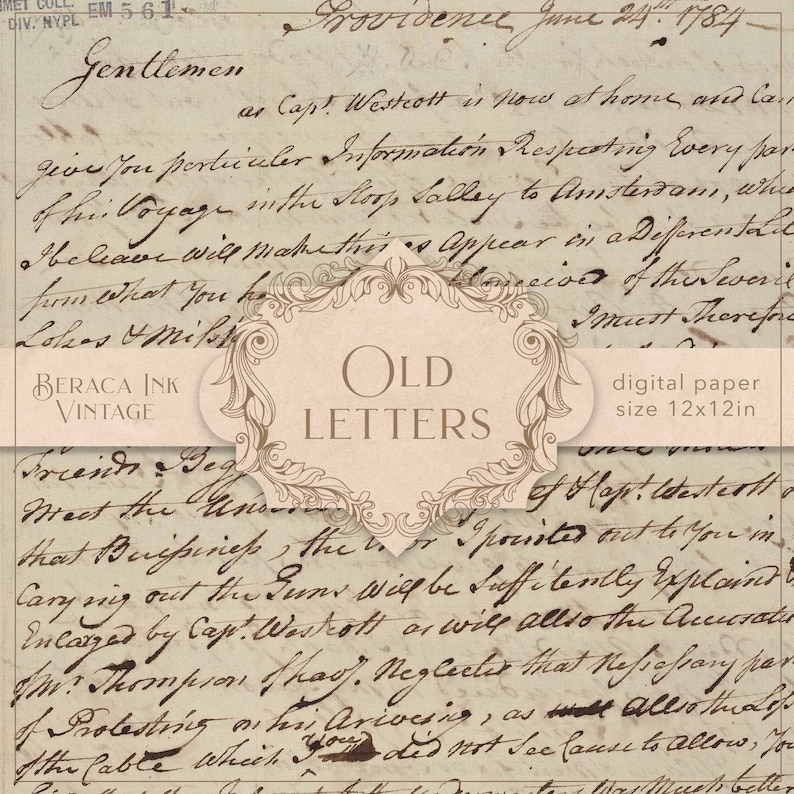 MET COLL.
DIV. NYPL EM 561
Providence June 24th. 1784
Gentlemen
as Capt. Westcott is now at home and Can
give You perticuler Information Respecting Every par
of his Voyage in the Sloop Salley to Amsterdam, whi
I beleave will make things Appear in a Different Li
from what You ha Conceived of the Severil
I must Therefore
BERACA INK
VINTAGE
OLD
LETTERS
digital paper
size 12x12in
Friends Beg
meet the of & Capt. Westcott
that Buissiness, the I pointed out to You in
Carrying out the Guns will be Suffitiently Explaind &
Enlarged by Capt. Westcott as will allso the
of Mr. Thompson of havg. Neglected that Nessessary par
of Protesting on his Ariveing, as allso the Loss
of the Cable which You did not See Cause to allow, You
Was Much better